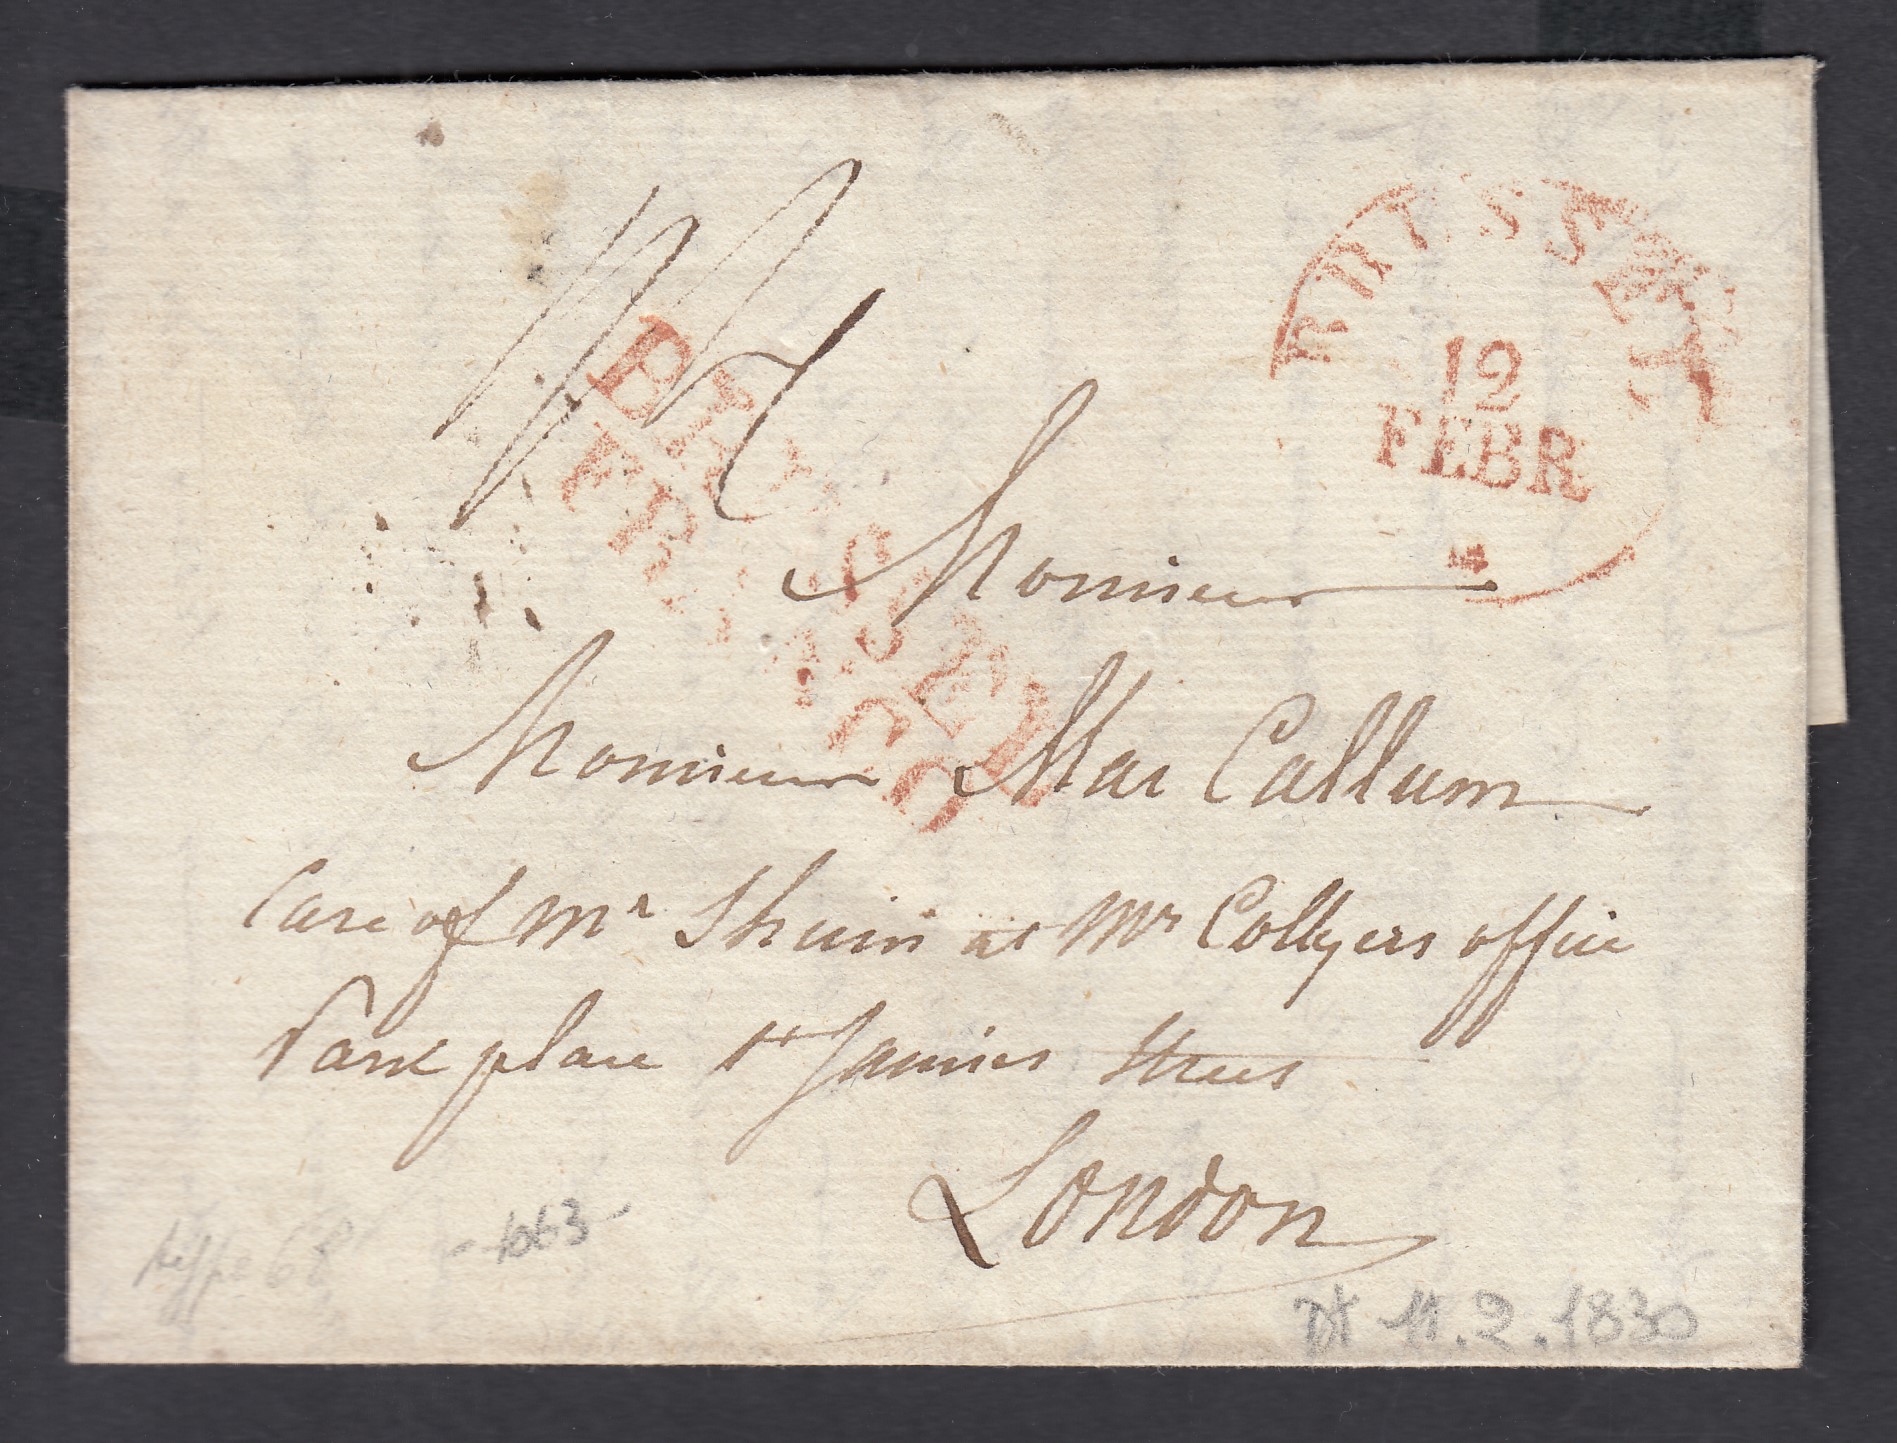 BRUSSEL
12
FEBR
BRUSSEL
FRANCO
Monsieur
Monsieur Mac Callum
Care of Mr at Mr Collyers office
Park place St James Street
London
1063
11.2.1830